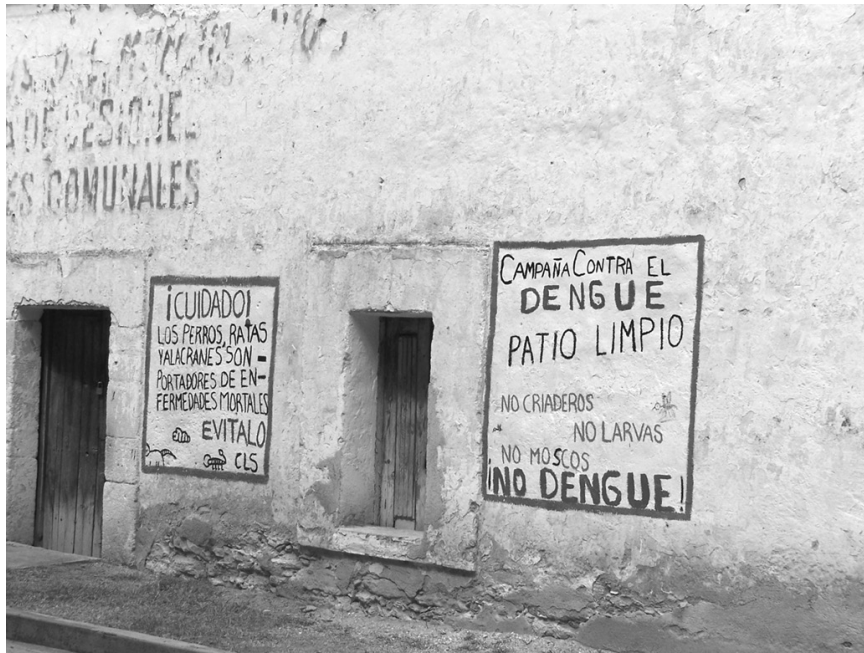 COMUNALES
¡CUIDADO!
LOS PERROS, RATAS
Y ALACRANES SON -
PORTADORES DE EN-
FERMEDADES MORTALES
EVITALO
CLS
CAMPAÑA CONTRA EL
DENGUE
PATIO LIMPIO
NO CRIADEROS
NO LARVAS
NO MOSCOS
¡NO DENGUE!